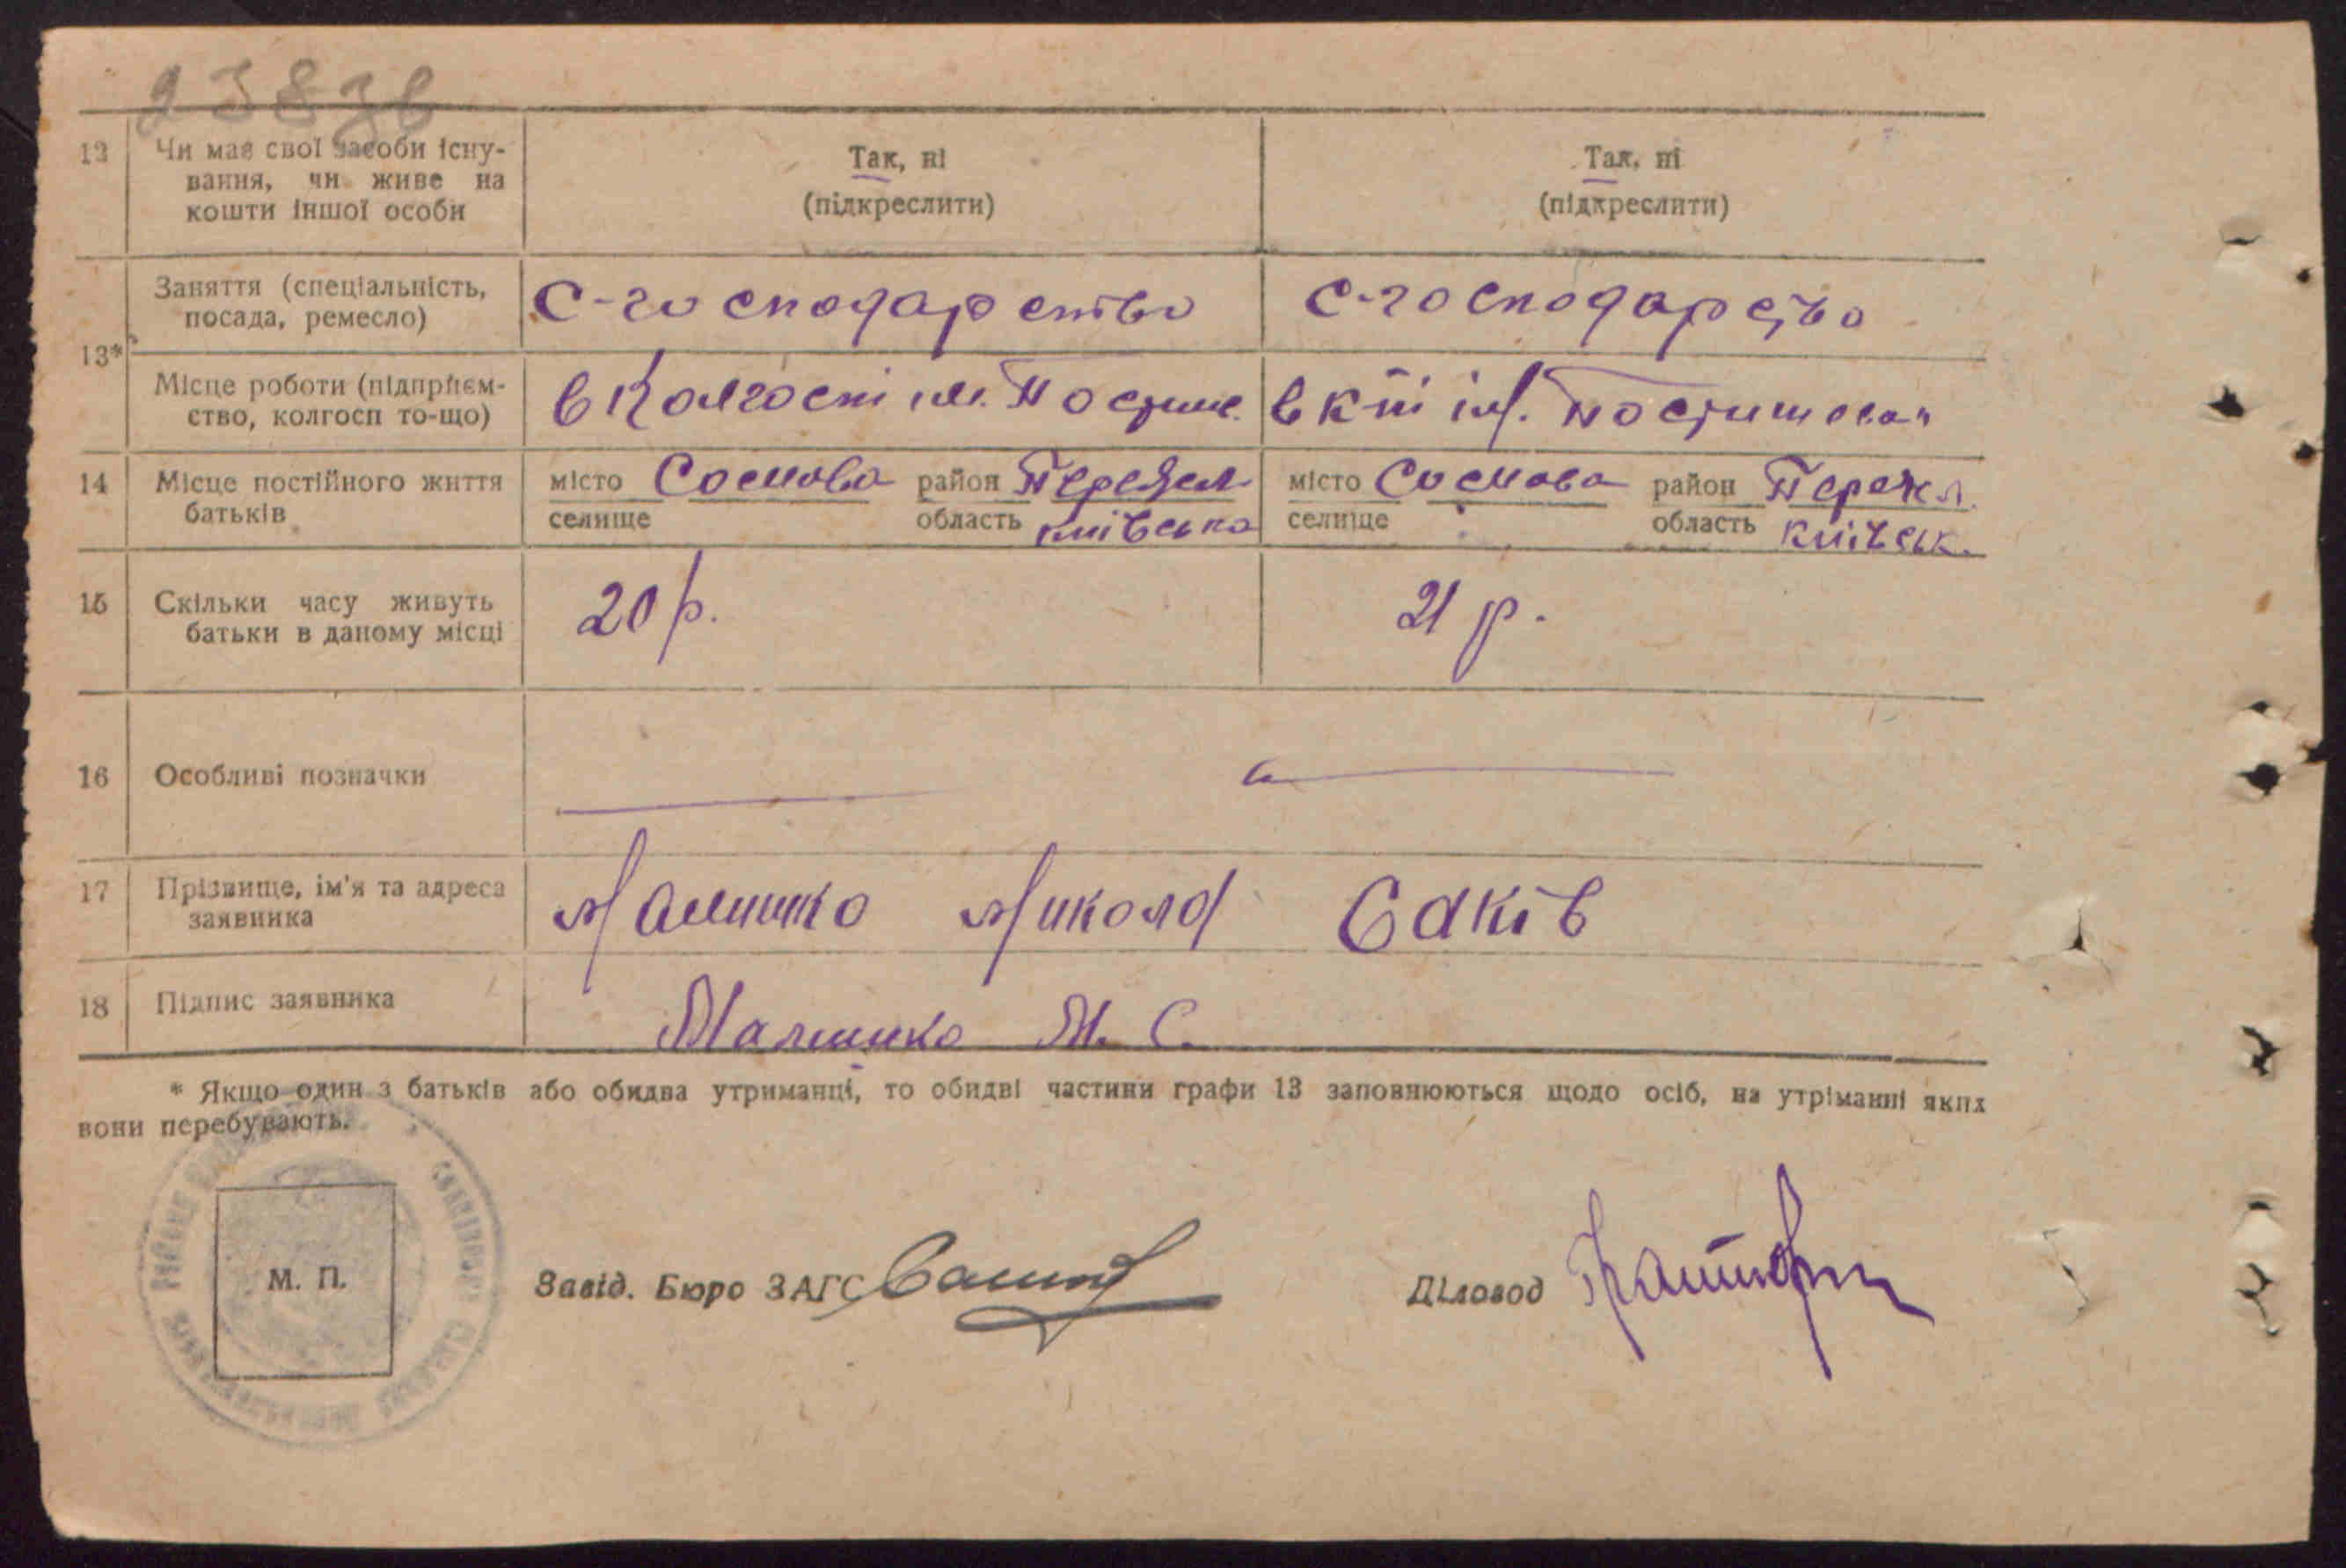 12 Чи має свої засоби існу-
вання, чи живе на
кошти іншої особи
Так, ні
(підкреслити)
Так, ні
(підкреслити)
13*
Заняття (спеціальність,
посада, ремесло)
С-господарство
С-господарство
Місце роботи (підприєм-
ство, колгосп то-що)
в Колгоспі ім. Постиш.
в к-пі ім. Постишева
14 Місце постійного життя
батьків
місто Соснова район Переясл.
селище область київська
місто Соснова район Переясл.
селище область київськ.
15 Скільки часу живуть
батьки в даному місці
20 р.
21 р.
16 Особливі позначки
17 Прізвище, ім'я та адреса
заявника
Малишко Микола Єаків
18 Підпис заявника
Малишко М. С.
* Якщо один з батьків або обидва утриманці, то обидві частини графи 13 заповнюються щодо осіб, на утріманні яких
вони перебувають.
М. П.
Завід. Бюро ЗАГС
Діловод